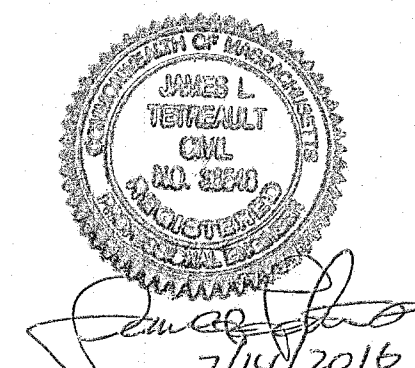 COMMONWEALTH OF MASSACHUSETTS
JAMES L.
TETREAULT
CIVIL
NO.
REGISTERED
PROFESSIONAL ENGINEER
7/14/2016